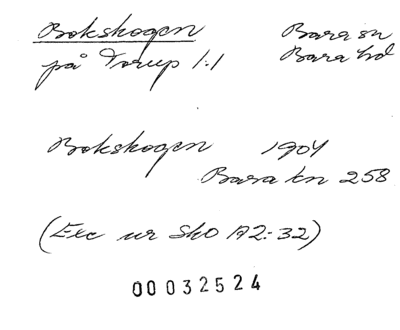 Bokskogen Bara sn
på Torup 1:1 Bara hd
Bokskogen 1904
Bara kn 258
(Exc ur SkO A2:32)
00032524